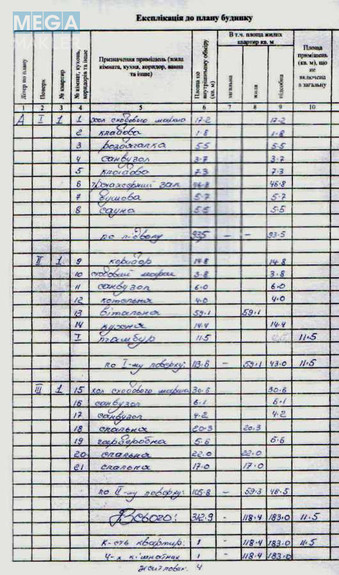 MEGA
МАКЛЕР
Експлікація до плану будинку
Літер по плану | Поверх | № квартир | № кімнат, кухонь, коридорів та інше | Призначення приміщень (жила кімната, кухня, коридор, ванна та інше) | Площа по внутрішньому обміру (кв. м) | В т.ч. площа жилих квартир кв. м | загальна | жила | підсобна | Площа приміщень (кв. м), що не включена в загальну
1 2 3 4 5 6 7 8 9 10
А I 1 1 хол сходового маршу 17.2 17.2
2 кладова 1.8 1.8
3 роздягалка 5.5 5.5
4 санвузол 3.7 3.7
5 кладова 7.3 7.3
6 тренажерний зал 46.8 46.8
7 душова 5.7 5.7
8 сауна 5.5 5.5
по підвалу 93.5 – – 93.5
II 1 9 коридор 14.8 14.8
10 сходовий марш 3.8 3.8
11 санвузол 6.0 6.0
12 котельня 4.0 4.0
13 вітальня 59.1 59.1
14 кухня 14.4 14.4
I тамбур 11.5 11.5
по I-му поверху: 113.6 – 59.1 43.0 11.5
III 1 15 хол сходового маршу 30.6 30.6
16 санвузол 6.1 6.1
17 санвузол 4.2 4.2
18 спальня 20.3 20.3
19 гардеробна 5.6 5.6
20 спальня 22.0 22.0
21 спальня 17.0 17.0
по II-му поверху: 105.8 – 59.3 46.5
Всього: 312.9 – 118.4 183.0 11.5
К-сть квартир: 1 – 118.4 183.0 11.5
4-х кімнатних 1 – 118.4 183.0
Житлових: 4